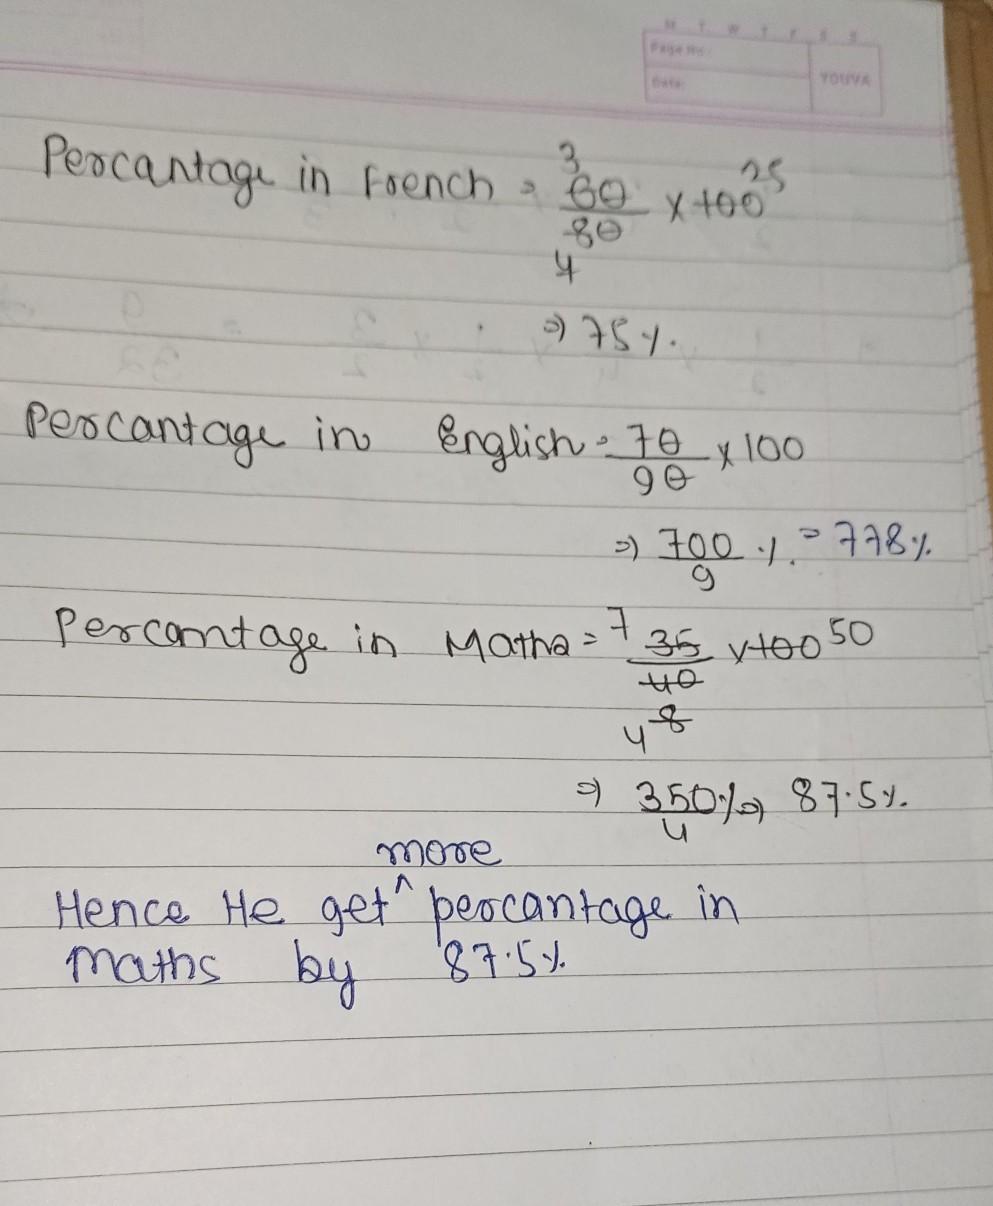 M T W T F S S
Page No.:
Date:
YOUVA
Percantage in French = 3 60/80 4 × 100 25
⇒ 75 %.
Percantage in English = 70/90 × 100
⇒ 700/9 %. = 778 %.
Percantage in Maths = 7 35/40 8 4 × 100 50
⇒ 350/4 % ⇒ 87.5 %.
more
Hence He get ^ percantage in
maths by 87.5 %.